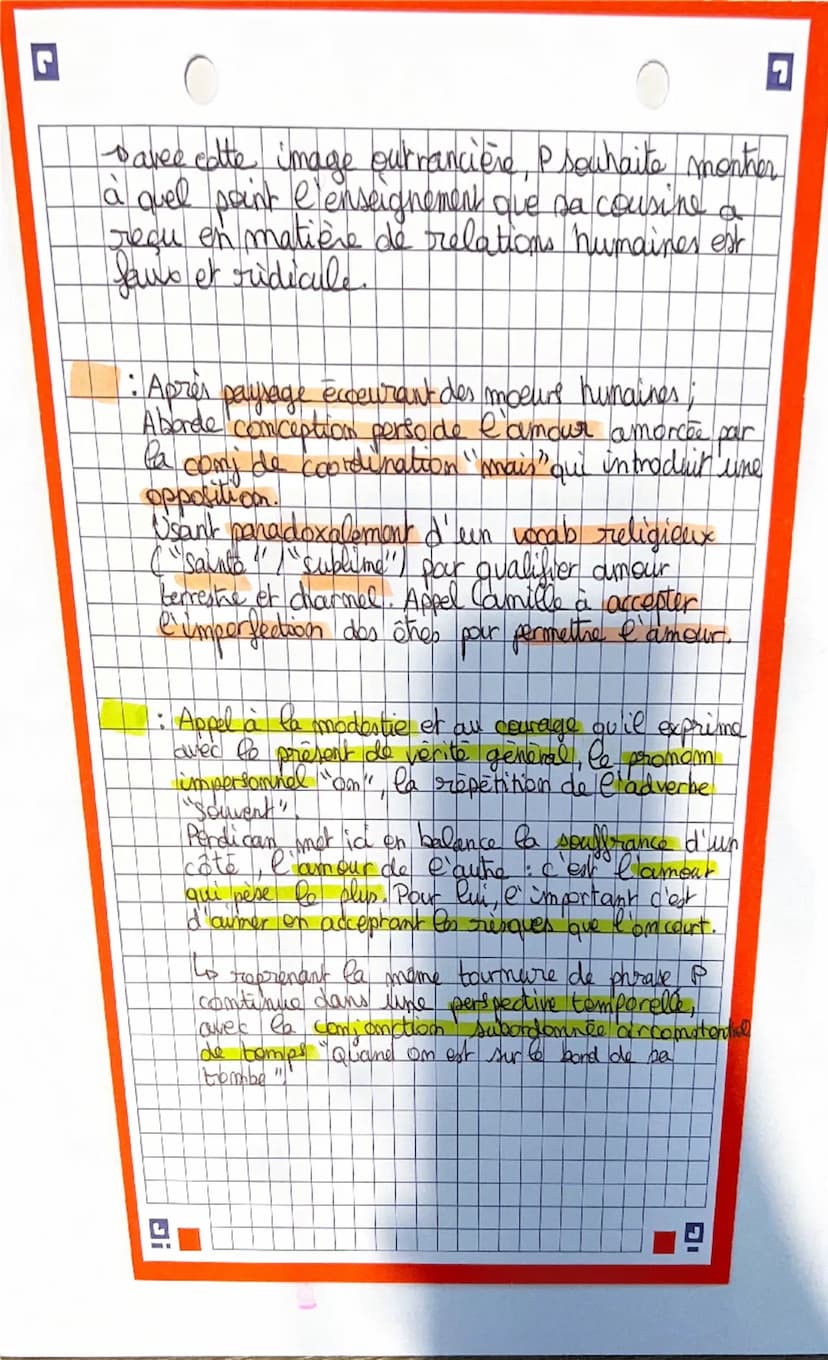 → avec cette image outrancière, P souhaite montrer
à quel point l'enseignement que sa cousine a
reçu en matière de relations humaines est
faux et ridicule.
: Après paysage écoeurant des moeurs humaines ;
Aborde conception perso de l'amour amorcée par
la conj de coordination "mais" qui introduit une
opposition.
Usant paradoxalement d'un vocab religieux
("sainte" / "sublime") pour qualifier amour
terrestre et charnel. Appel Camille à accepter
l'imperfection des êtres pour permettre l'amour.
: Appel à la modestie et au courage qu'il exprime
avec le présent de vérité général, le pronom
impersonnel "on", la répétition de l'adverbe
"souvent".
Perdican met ici en balance la souffrance d'un
côté, l'amour de l'autre : c'est l'amour
qui pèse le plus. Pour lui, l'important c'est
d'aimer en acceptant les risques que l'on court.
↳ reprenant la même tournure de phrase P
continue dans une perspective temporelle,
avec la conjonction subordonnée circonstentiel
de temps "Quand on est sur le bord de sa
tombe".